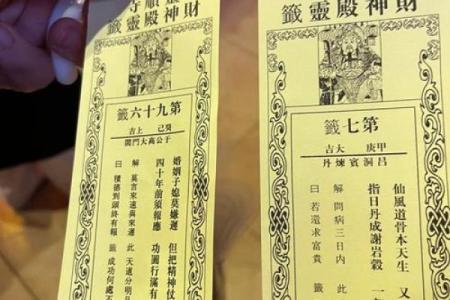 財神靈籤
第九十六籤
癸巳 上吉
于公高大門閭
婚姻子媳莫嫌遲 但把精神仗
四十年前須報應 功圓行滿有
解 莫言來速與來遲 此 天道分明
曰 積德到頭終有報 籤 成功何處不
財神殿靈籤
第七籤
甲庚 大吉
呂洞賓煉丹
仙風道骨本天生 又
指日丹成謝岩穀 一
解 問病三日內 此
曰 若還求富貴 籤